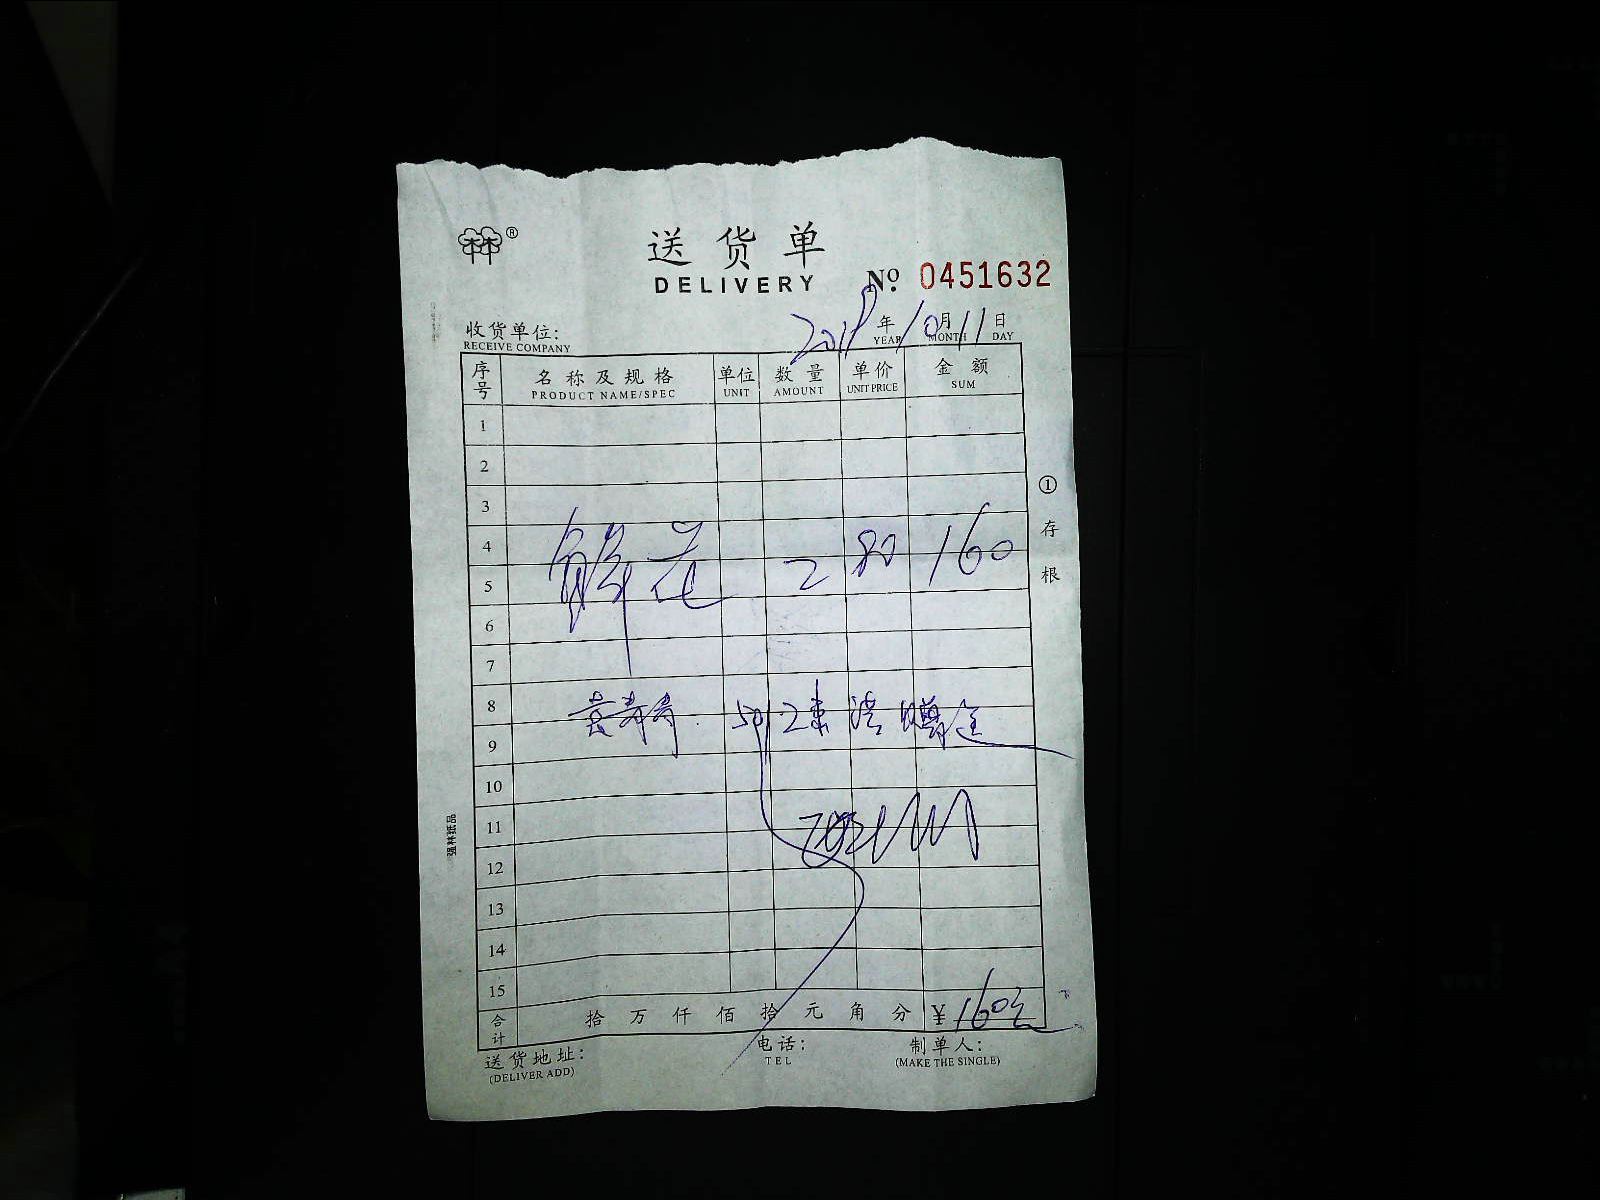 ®
送货单
DELIVERY
№ 0451632
收货单位: 2018年10月11日
RECEIVE COMPANY YEAR MONTH DAY
序号 名称及规格 单位 数量 单价 金额
PRODUCT NAME/SPEC UNIT AMOUNT UNIT PRICE SUM
1
2
3
4 鲜花 2 80 160
5
6
7
8
9
10
11
12
13
14
15
合计 拾 万 仟 佰 拾 元 角 分 ¥160元
送货地址: 电话: 制单人:
(DELIVER ADD) TEL (MAKE THE SINGLE)
① 存根
强林纸品